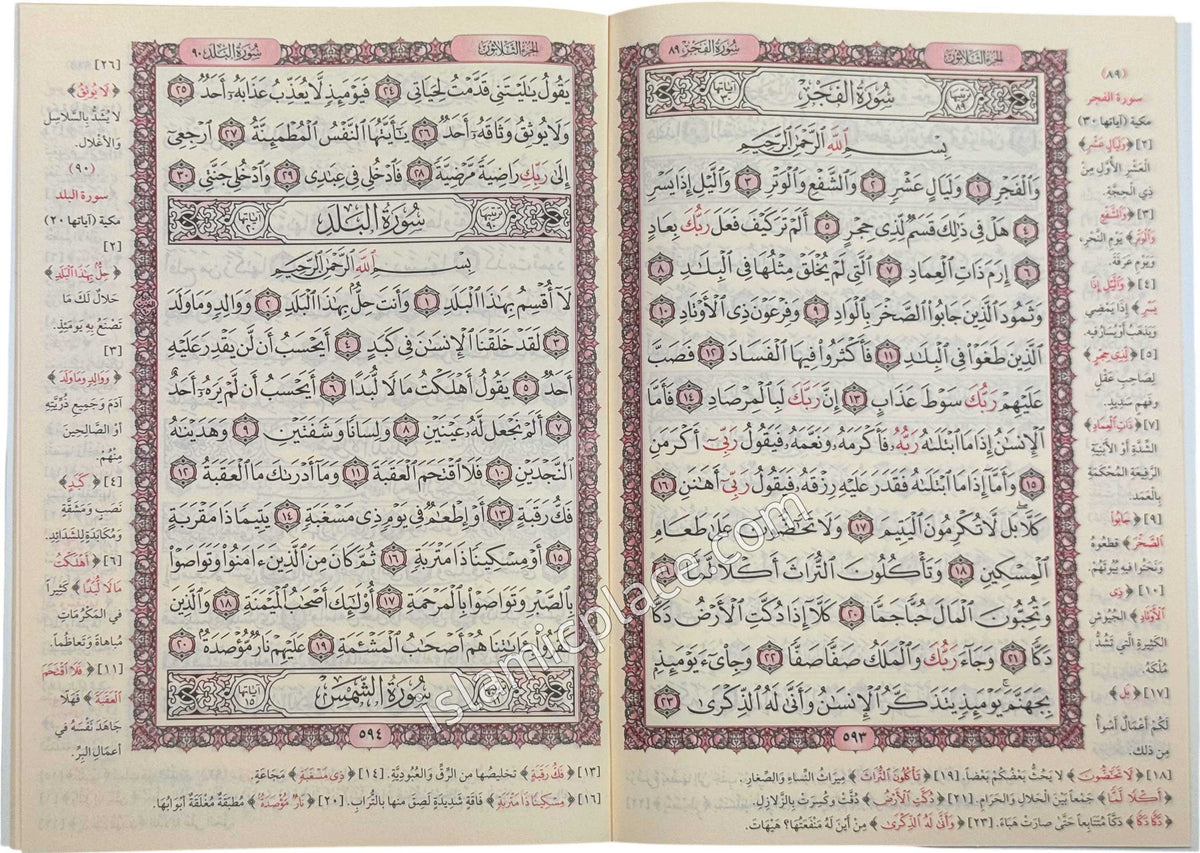 الجزء الثلاثون
سورة الفجر ٨٩
سُورَةُ الفَجْرِ
آياتها ٣٠
ترتيبها ٨٩
بِسْمِ ٱللَّهِ ٱلرَّحْمَٰنِ ٱلرَّحِيمِ
وَٱلْفَجْرِ ١ وَلَيَالٍ عَشْرٍ ٢ وَٱلشَّفْعِ وَٱلْوَتْرِ ٣ وَٱلَّيْلِ إِذَا يَسْرِ
٤ هَلْ فِى ذَٰلِكَ قَسَمٌ لِّذِى حِجْرٍ ٥ أَلَمْ تَرَ كَيْفَ فَعَلَ رَبُّكَ بِعَادٍ
٦ إِرَمَ ذَاتِ ٱلْعِمَادِ ٧ ٱلَّتِى لَمْ يُخْلَقْ مِثْلُهَا فِى ٱلْبِلَٰدِ ٨
وَثَمُودَ ٱلَّذِينَ جَابُوا۟ ٱلصَّخْرَ بِٱلْوَادِ ٩ وَفِرْعَوْنَ ذِى ٱلْأَوْتَادِ ١٠
ٱلَّذِينَ طَغَوْا۟ فِى ٱلْبِلَٰدِ ١١ فَأَكْثَرُوا۟ فِيهَا ٱلْفَسَادَ ١٢ فَصَبَّ
عَلَيْهِمْ رَبُّكَ سَوْطَ عَذَابٍ ١٣ إِنَّ رَبَّكَ لَبِٱلْمِرْصَادِ ١٤ فَأَمَّا
ٱلْإِنسَٰنُ إِذَا مَا ٱبْتَلَىٰهُ رَبُّهُۥ فَأَكْرَمَهُۥ وَنَعَّمَهُۥ فَيَقُولُ رَبِّىٓ أَكْرَمَنِ
١٥ وَأَمَّآ إِذَا مَا ٱبْتَلَىٰهُ فَقَدَرَ عَلَيْهِ رِزْقَهُۥ فَيَقُولُ رَبِّىٓ أَهَٰنَنِ ١٦
كَلَّا بَل لَّا تُكْرِمُونَ ٱلْيَتِيمَ ١٧ وَلَا تَحَٰٓضُّونَ عَلَىٰ طَعَامِ
ٱلْمِسْكِينِ ١٨ وَتَأْكُلُونَ ٱلتُّرَاثَ أَكْلًا لَّمًّا ١٩
وَتُحِبُّونَ ٱلْمَالَ حُبًّا جَمًّا ٢٠ كَلَّآ إِذَا دُكَّتِ ٱلْأَرْضُ دَكًّا
دَكًّا ٢١ وَجَآءَ رَبُّكَ وَٱلْمَلَكُ صَفًّا صَفًّا ٢٢ وَجِا۟ىٓءَ يَوْمَئِذٍۭ
بِجَهَنَّمَ يَوْمَئِذٍ يَتَذَكَّرُ ٱلْإِنسَٰنُ وَأَنَّىٰ لَهُ ٱلذِّكْرَىٰ ٢٣
٥٩٣
(٨٩)
سورة الفجر
مكية (آياتها ٣٠)
[٢] ﴿وَلَيَالٍ عَشْرٍ﴾
العَشْرِ الأُوَلِ مِنْ
ذِي الحِجَّةِ.
[٣] ﴿وَالشَّفْعِ
وَالْوَتْرِ﴾ يَومِ النَّحْرِ،
وَيَومِ عَرَفَةَ.
[٤] ﴿وَالَّيْلِ إِذَا
يَسْرِ﴾ إِذَا يَمْضِي
وَيَذهَبُ أَوْ يُسَارُ فِيهِ.
[٥] ﴿لِذِى حِجْرٍ﴾
لِصَاحِبِ عَقْلٍ
وَفَهمٍ سَدِيدٍ.
[٧] ﴿ذَاتِ الْعِمَادِ﴾
الشِّدَّةِ أَوْ الأَبْنِيَةِ
الرَّفِيعَةِ المُحْكَمَةِ
بِالْعَمَدِ.
[٩] ﴿جَابُوا
الصَّخْرَ﴾ قَطَعُوهُ
وَنَحَتُوا فِيهِ بُيُوتَهُمْ.
[١٠] ﴿ذِى
الْأَوْتَادِ﴾ الجُيُوشِ
الكَثِيرَةِ الَّتِي تَشُدُّ
مُلْكَهُ.
[١٧] ﴿بَل﴾
لَكُمْ أَعْمَالٌ أَسْوَأُ
مِن ذَلِكَ.
[١٨] ﴿لَا تَحَاضُّونَ﴾ لَا يَحُثُّ بَعْضُكُمْ بَعْضاً. [١٩] ﴿تَأْكُلُونَ التُّرَاثَ﴾ مِيرَاثَ النِّسَاءِ وَالصِّغَارِ.
﴿أَكْلًا لَّمًّا﴾ جَمْعاً بَيْنَ الحَلَالِ وَالحَرَامِ. [٢١] ﴿دُكَّتِ الْأَرْضُ﴾ دُقَّتْ وَكُسِرَتْ بِالزَّلَازِلِ.
﴿دَكًّا دَكًّا﴾ دَكًّا مُتَتَابِعاً حَتَّى صَارَتْ هَبَاءً. [٢٣] ﴿وَأَنَّىٰ لَهُ الذِّكْرَىٰ﴾ مِنْ أَيْنَ لَهُ مَنْفَعَتُهَا؟ هَيْهَاتَ.
الجزء الثلاثون
سورة البلد ٩٠
يَقُولُ يَٰلَيْتَنِى قَدَّمْتُ لِحَيَاتِى ٢٤ فَيَوْمَئِذٍ لَّا يُعَذِّبُ عَذَابَهُۥٓ أَحَدٌ ٢٥
وَلَا يُوثِقُ وَثَاقَهُۥٓ أَحَدٌ ٢٦ يَٰٓأَيَّتُهَا ٱلنَّفْسُ ٱلْمُطْمَئِنَّةُ ٢٧ ٱرْجِعِىٓ
إِلَىٰ رَبِّكِ رَاضِيَةً مَّرْضِيَّةً ٢٨ فَٱدْخُلِى فِى عِبَٰدِى ٢٩ وَٱدْخُلِى جَنَّتِى ٣٠
سُورَةُ البَلَدِ
آياتها ٢٠
ترتيبها ٩٠
بِسْمِ ٱللَّهِ ٱلرَّحْمَٰنِ ٱلرَّحِيمِ
لَآ أُقْسِمُ بِهَٰذَا ٱلْبَلَدِ ١ وَأَنتَ حِلٌّۢ بِهَٰذَا ٱلْبَلَدِ ٢ وَوَالِدٍ وَمَا وَلَدَ
٣ لَقَدْ خَلَقْنَا ٱلْإِنسَٰنَ فِى كَبَدٍ ٤ أَيَحْسَبُ أَن لَّن يَقْدِرَ عَلَيْهِ
أَحَدٌ ٥ يَقُولُ أَهْلَكْتُ مَالًا لُّبَدًا ٦ أَيَحْسَبُ أَن لَّمْ يَرَهُۥٓ أَحَدٌ
٧ أَلَمْ نَجْعَل لَّهُۥ عَيْنَيْنِ ٨ وَلِسَانًا وَشَفَتَيْنِ ٩ وَهَدَيْنَٰهُ
ٱلنَّجْدَيْنِ ١٠ فَلَا ٱقْتَحَمَ ٱلْعَقَبَةَ ١١ وَمَآ أَدْرَىٰكَ مَا ٱلْعَقَبَةُ ١٢
فَكُّ رَقَبَةٍ ١٣ أَوْ إِطْعَٰمٌ فِى يَوْمٍ ذِى مَسْغَبَةٍ ١٤ يَتِيمًا ذَا مَقْرَبَةٍ
١٥ أَوْ مِسْكِينًا ذَا مَتْرَبَةٍ ١٦ ثُمَّ كَانَ مِنَ ٱلَّذِينَ ءَامَنُوا۟ وَتَوَاصَوْا۟
بِٱلصَّبْرِ وَتَوَاصَوْا۟ بِٱلْمَرْحَمَةِ ١٧ أُو۟لَٰٓئِكَ أَصْحَٰبُ ٱلْمَيْمَنَةِ ١٨ وَٱلَّذِينَ
كَفَرُوا۟ بِـَٔايَٰتِنَا هُمْ أَصْحَٰبُ ٱلْمَشْـَٔمَةِ ١٩ عَلَيْهِمْ نَارٌ مُّؤْصَدَةٌۢ ٢٠
سُورَةُ الشَّمْسِ
آياتها ١٥
٥٩٤
[٢٦]
﴿لَا يُوثِقُ﴾
لَا يُشَدُّ بِالسَّلَاسِلِ
وَالأَغْلَالِ.
(٩٠)
سورة البلد
مكية (آياتها ٢٠)
[٢]
﴿حِلٌّ بِهَٰذَا الْبَلَدِ﴾
حَلَالٌ لَكَ مَا
تَصْنَعُ بِهِ يَومَئِذٍ.
[٣]
﴿وَوَالِدٍ وَمَا وَلَدَ﴾
آدَمَ وَجَمِيعِ ذُرِّيَّتِهِ
أَوْ الصَّالِحِينَ
مِنْهُمْ.
[٤] ﴿كَبَدٍ﴾
نَصَبٍ وَمَشَقَّةٍ
وَمُكَابَدَةٍ لِلشَّدَائِدِ.
[٦] ﴿أَهْلَكْتُ
مَالًا لُّبَدًا﴾ كَثِيراً
فِي المَكْرُمَاتِ
مُبَاهَاةً وَتَعَاظُماً.
[١١] ﴿فَلَا اقْتَحَمَ
الْعَقَبَةَ﴾ فَهَلَّا
جَاهَدَ نَفْسَهُ فِي
أَعمَالِ البِرِّ.
[١٣] ﴿فَكُّ رَقَبَةٍ﴾ تَخلِيصُهَا مِن الرِّقِّ وَالعُبُودِيَّةِ. [١٤] ﴿ذِى مَسْغَبَةٍ﴾ مَجَاعَةٍ.
[١٦] ﴿مِسْكِينًا ذَا مَتْرَبَةٍ﴾ فَاقَةٍ شَدِيدَةٍ لَصِقَ مِنها بِالتُّرابِ. [٢٠] ﴿نَارٌ مُّؤْصَدَةٌ﴾ مُطْبَقَةٌ مُغْلَقَةٌ أَبوَابُهَا.
islamicplace.com